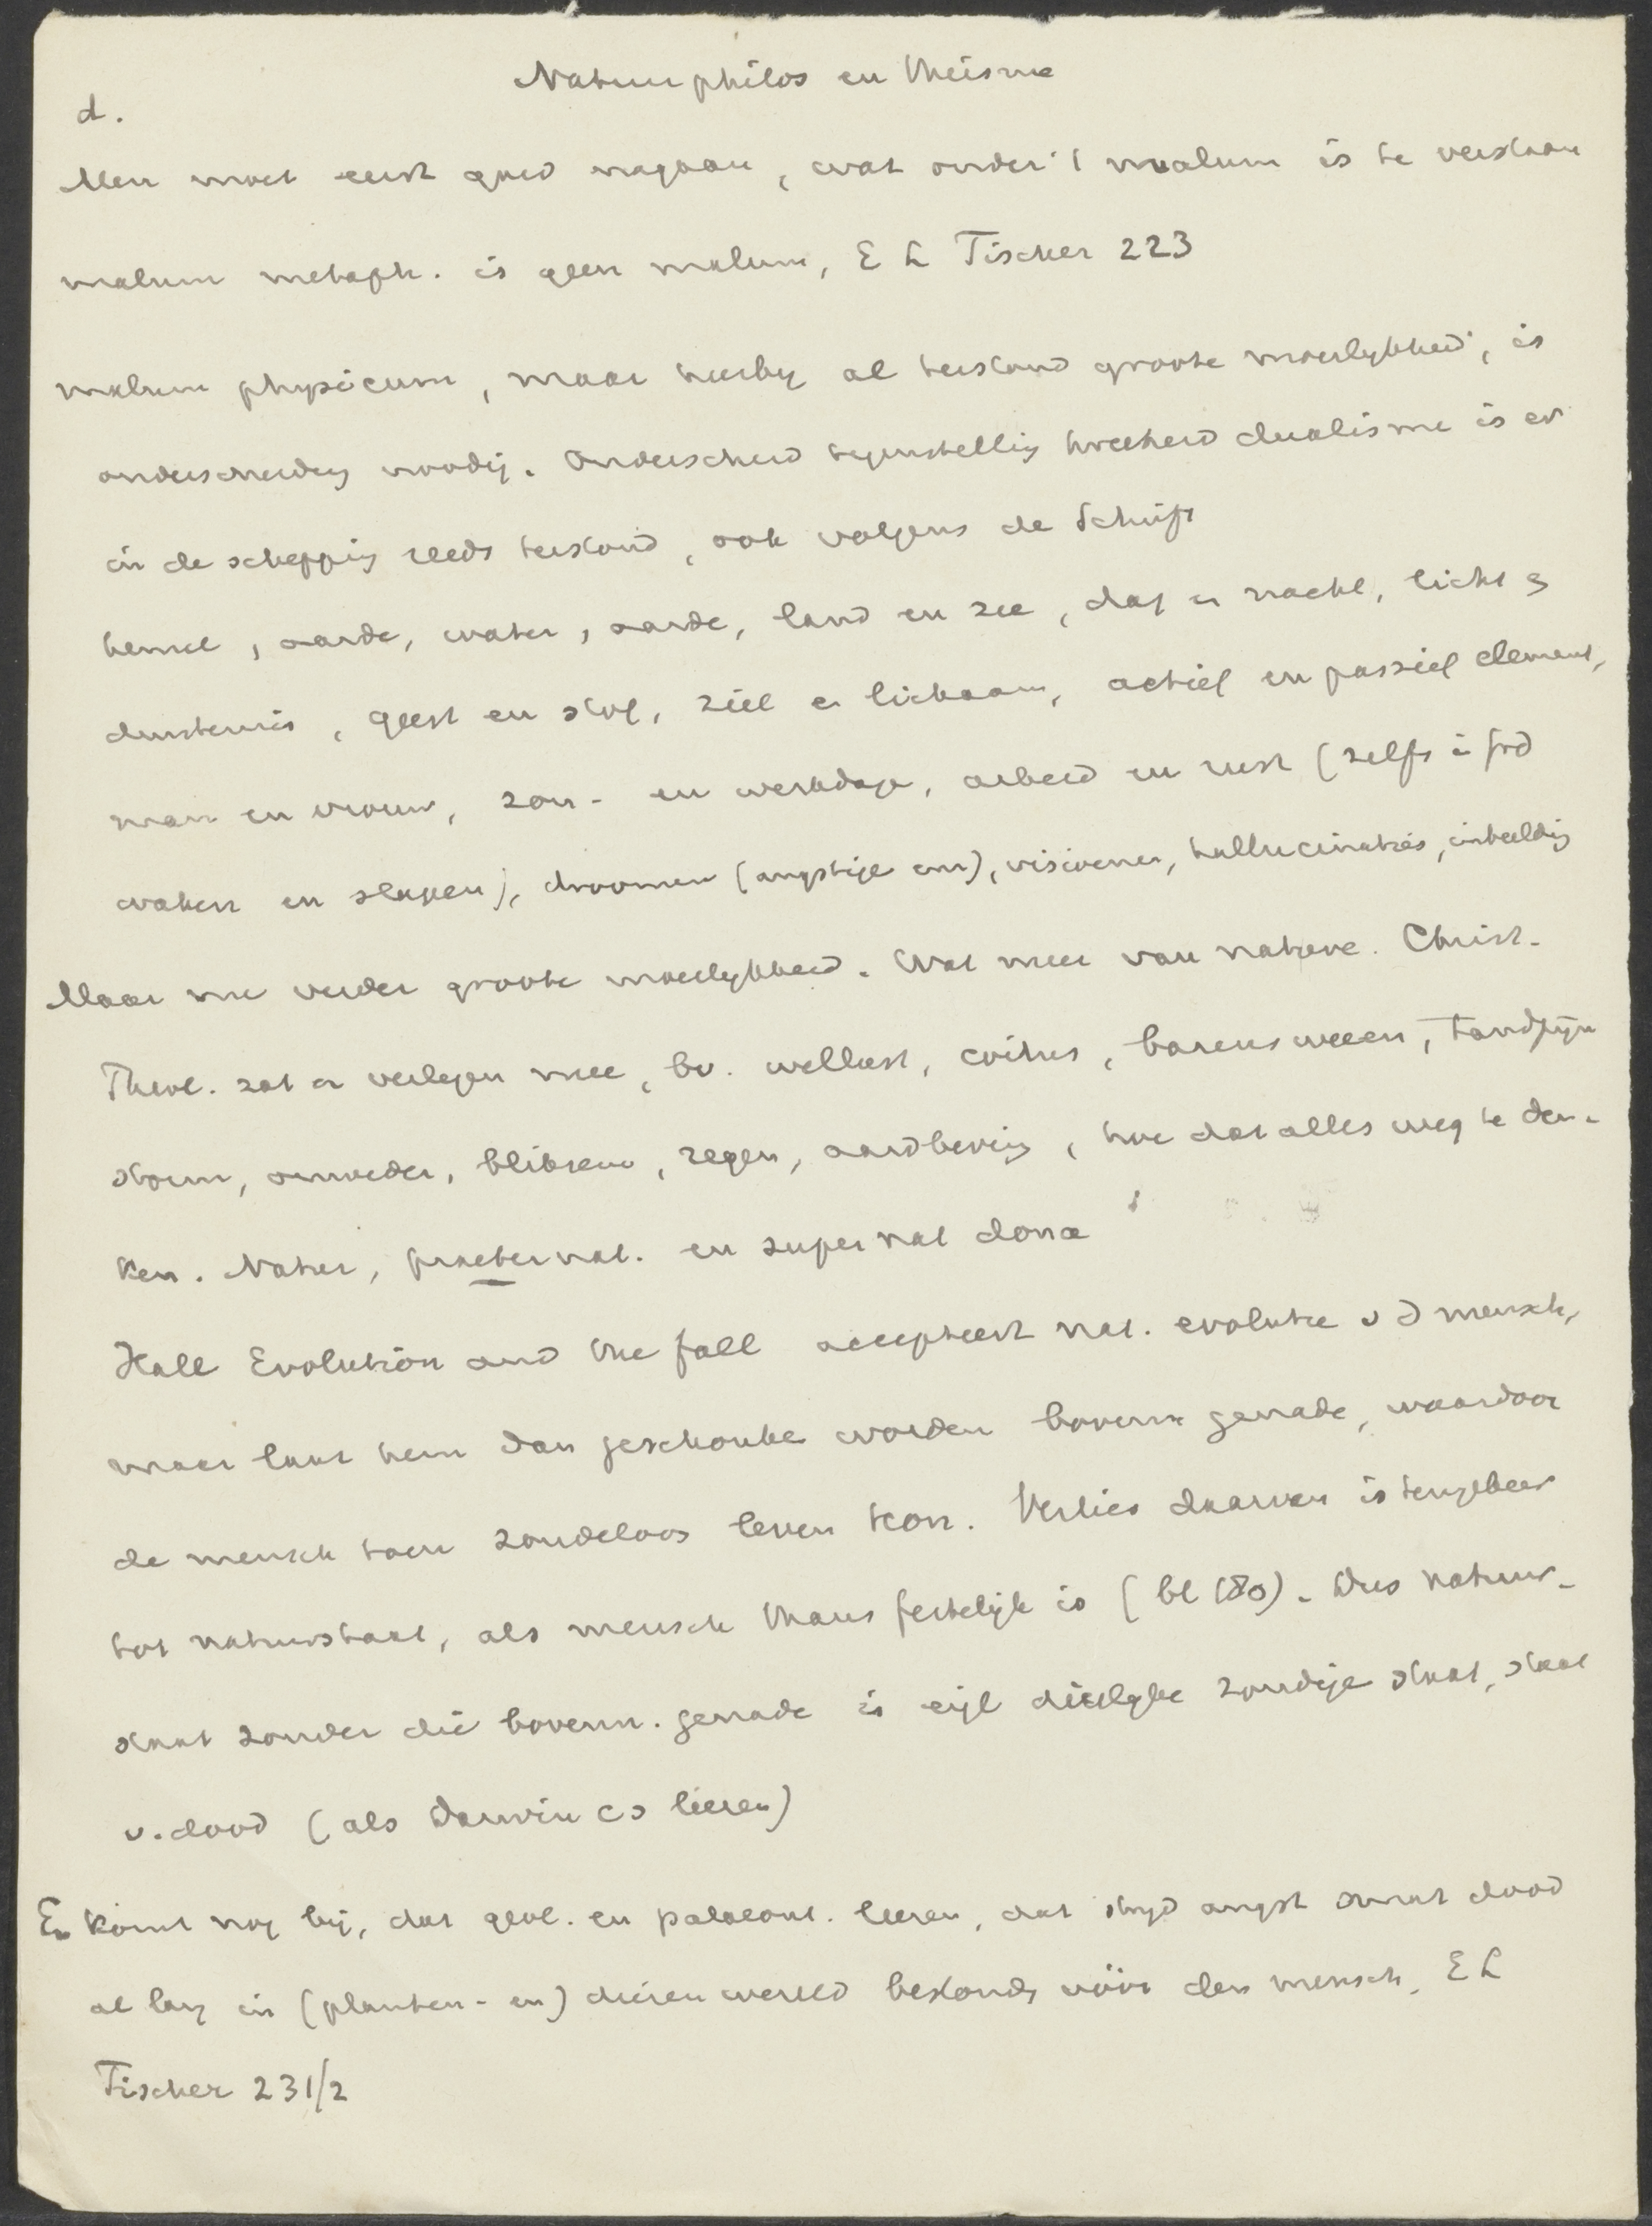 Natuurphilos en theisme
d.
Men moet eerst goed nagaan, wat onder 't malum is te verstaan
malum metaph. is geen malum, E L Fischer 223
malum physicum, maar hierby al terstond groote moeilykheid, is
onderscheiding noodig. Onderscheid tegenstelling tweeheid dualisme is er
in de schepping reeds terstond, ook volgens de Schrift
hemel, aarde, water, aarde, land en zee, dag en nacht, licht en
duisternis, geest en stof, ziel en lichaam, actief en passief element,
man en vrouw, zon- en werkdage, arbeid en rust (zelfs
waken en slapen), droomen (angstige enz), visioenen, hallucinaties, inbeelding
Maar nu verder groote moeilykheid. Wat meer van nature. Christ.
Theol. zat er verlegen mee, bv. wellust, coitus, barensweeen, tandpyn
storm, onweder, bliksem, regen, aardbeving, hoe dat alles weg te den-
ken. Natuur, praeternat. en supernat dona
Hall Evolution and the fall accepteert nat. evolutie v d mensch,
maar laat hem dan geschonke worden bovenn genade, waardoor
de mensch toen zondeloos leven kon. Verlies daarvan is terugkeer
tot natuurstaat, als mensch thans feitelijk is (bl 180). Dus natuur-
staat zonder die bovenn. genade is eigl dierlyke zondige staat, staat
v. dood (als Darwin cs leeren)
En komt nog bij, dat geol. en palaeont. leeren, dat stryd angst smart dood
al lang in (planten- en) dierenwereld bestonds vóór den mensch. E L
Fischer 231/2